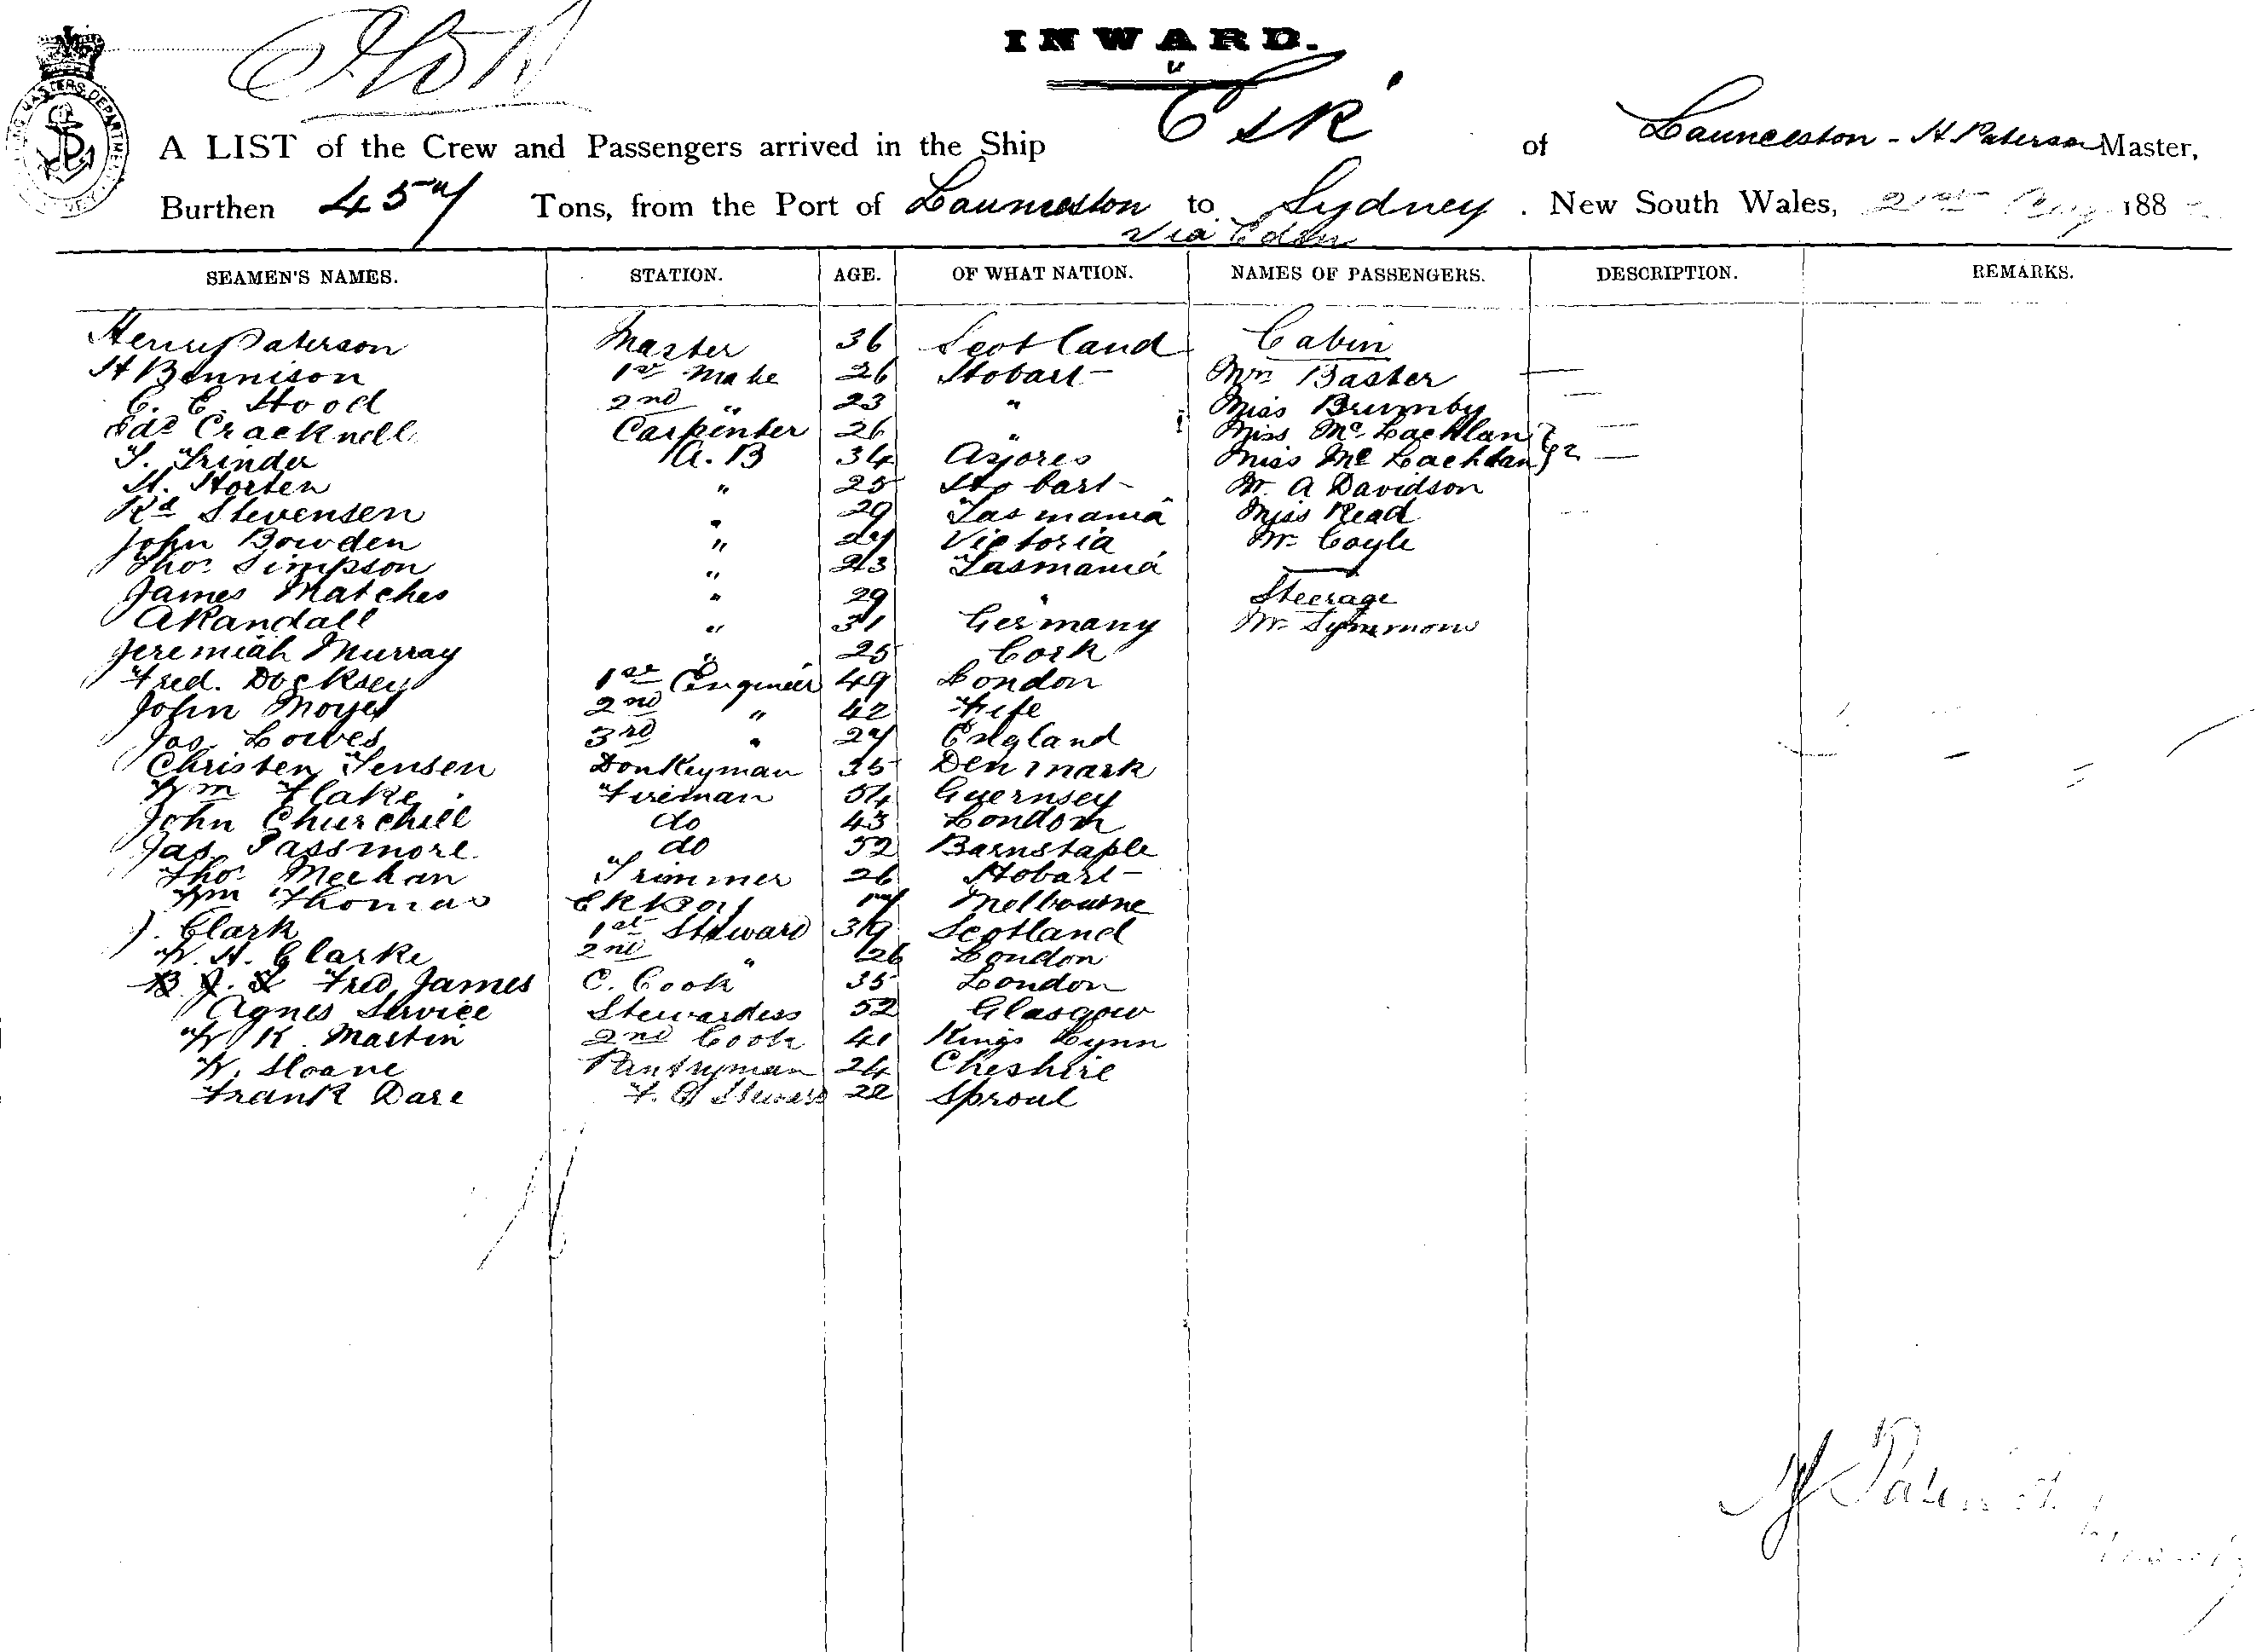 INWARD.
"Esk"
A LIST of the Crew and Passengers arrived in the Ship of Launceston - H. Paterson Master,
Burthen 457 Tons, from the Port of Launceston to Sydney. New South Wales, 21st Aug 188
Via Eden
SEAMEN'S NAMES. STATION. AGE. OF WHAT NATION. NAMES OF PASSENGERS. DESCRIPTION. REMARKS.
Henry Paterson Master 36 Scotland Cabin
H Bennison 1st Mate 26 Hobart Baxter
C. E. Hood 2nd " 23 " Miss Brumby
Edd Cracknell Carpenter 26 " Miss McLachlan
T. Trinder A.B 34 Azores Miss McLachlan } 2
H. Horten " 25 Hobart Mr. A Davidson
Rd Stevensen " 29 Tasmania Miss Read
John Bowden " 27 Victoria Mr Coyle
Thos Simpson " 23 Tasmania
James Matches " 29 " Steerage
A Randall " 31 Germany Mr Symmons
Jeremiah Murray " 25 Cork
Fred. Docksey 1st Engineer 49 London
John Moyes 2nd " 42 Fife
Jas Lowes 3rd " 27 England
Christen Jensen Donkeyman 35 Denmark
Wm Flake Fireman 54 Guernsey
John Churchill do 43 London
Jas Passmore do 52 Barnstaple
Thos Meehan Trimmer 26 Hobart
Wm Thomas 17 Melbourne
J. Clark 1st Steward 39 Scotland
W. H. Clarke 2nd " 26 London
Fred James C. Cook 35 London
Agnes Service Stewardess 52 Glasgow
W K. Martin 2nd Cook 41 Kings Lynn
W. Sloane Pantryman 24 Cheshire
Frank Dare F. C Steward 22 Sproul
H Paterson